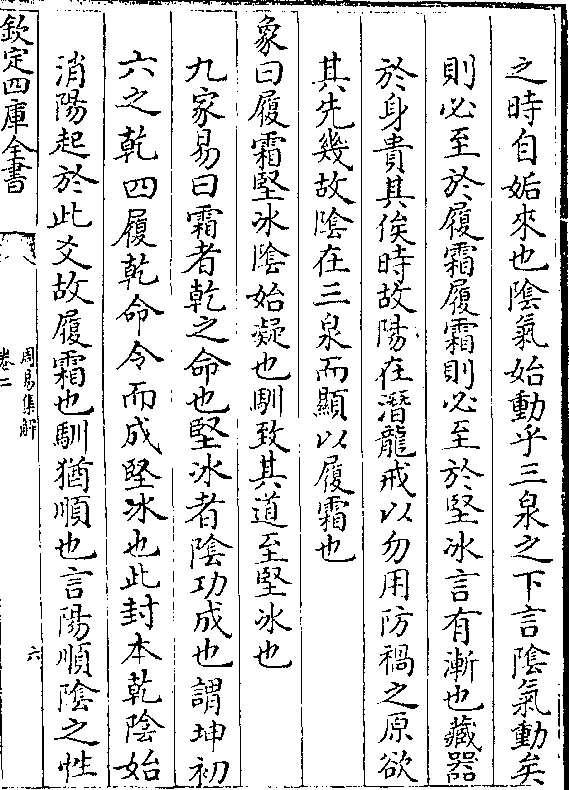 之時自姤來也陰氣始動乎三泉之下言陰氣動矣
則必至於履霜履霜則必至於堅冰言有漸也藏器
於身貴其俟時故陽在潛龍戒以勿用防禍之原欲
其先幾故陰在三泉而顯以履霜也
象曰履霜堅冰陰始凝也馴致其道至堅冰也
九家易曰霜者乾之命也堅冰者陰功成也謂坤初
六之乾四履乾命令而成堅冰也此封本乾陰始
消陽起於此爻故履霜也馴猶順也言陽順陰之性
欽定四庫全書
周易集解
卷二
六